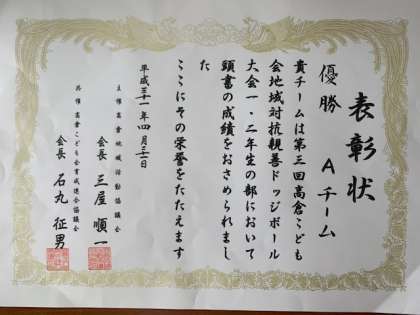 表彰状
優勝 Aチーム
貴チームは第三回高倉こども
会地域対抗親善ドッジボール
大会一・二年生の部において
頭書の成績をおさめられまし
た
ここにその栄誉をたたえます
平成三十一年四月二十一日
主催 高倉地域活動協議会
会長 三屋順一
共催 高倉こども会育成連合協議会
会長 石丸征男